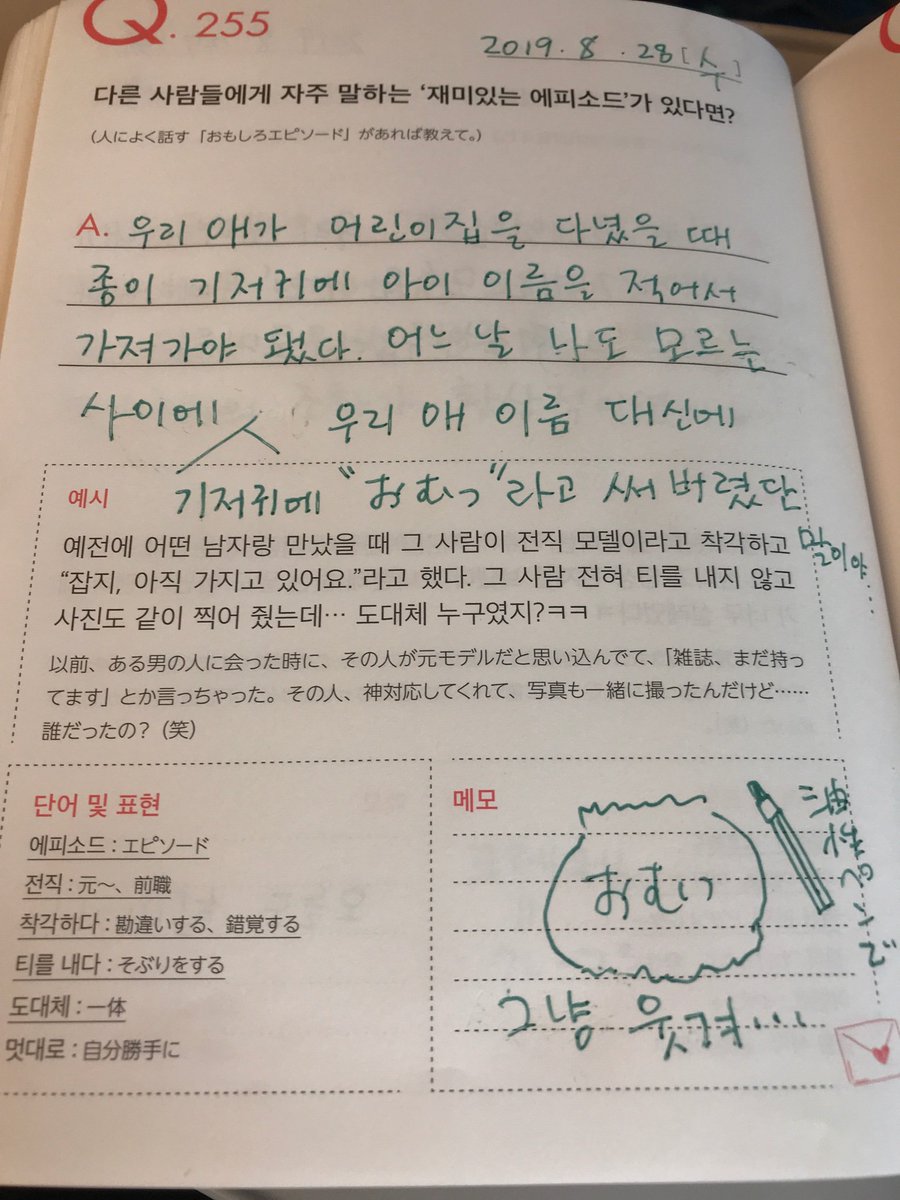 Q. 255
2019.8.28[수]
다른 사람들에게 자주 말하는 ‘재미있는 에피소드’가 있다면?
(人によく話す「おもしろエピソード」があれば教えて。)
A. 우리 애가 어린이집을 다녔을 때
종이 기저귀에 아이 이름을 적어서
가져가야 됐다. 어느 날 나도 모르는
사이에 우리 애 이름 대신에
기저귀에 “おむつ”라고 써 버렸단
말이야
예시
예전에 어떤 남자랑 만났을 때 그 사람이 전직 모델이라고 착각하고
“잡지, 아직 가지고 있어요.”라고 했다. 그 사람 전혀 티를 내지 않고
사진도 같이 찍어 줬는데… 도대체 누구였지?ㅋㅋ
以前、ある男の人に会った時に、その人が元モデルだと思い込んでて、「雑誌、まだ持っ
てます」とか言っちゃった。その人、神対応してくれて、写真も一緒に撮ったんだけど……
誰だったの？（笑）
단어 및 표현
에피소드 : エピソード
전직 : 元〜、前職
착각하다 : 勘違いする、錯覚する
티를 내다 : そぶりをする
도대체 : 一体
멋대로 : 自分勝手に
메모
おむつ
油性ペンで
그냥 웃겨...